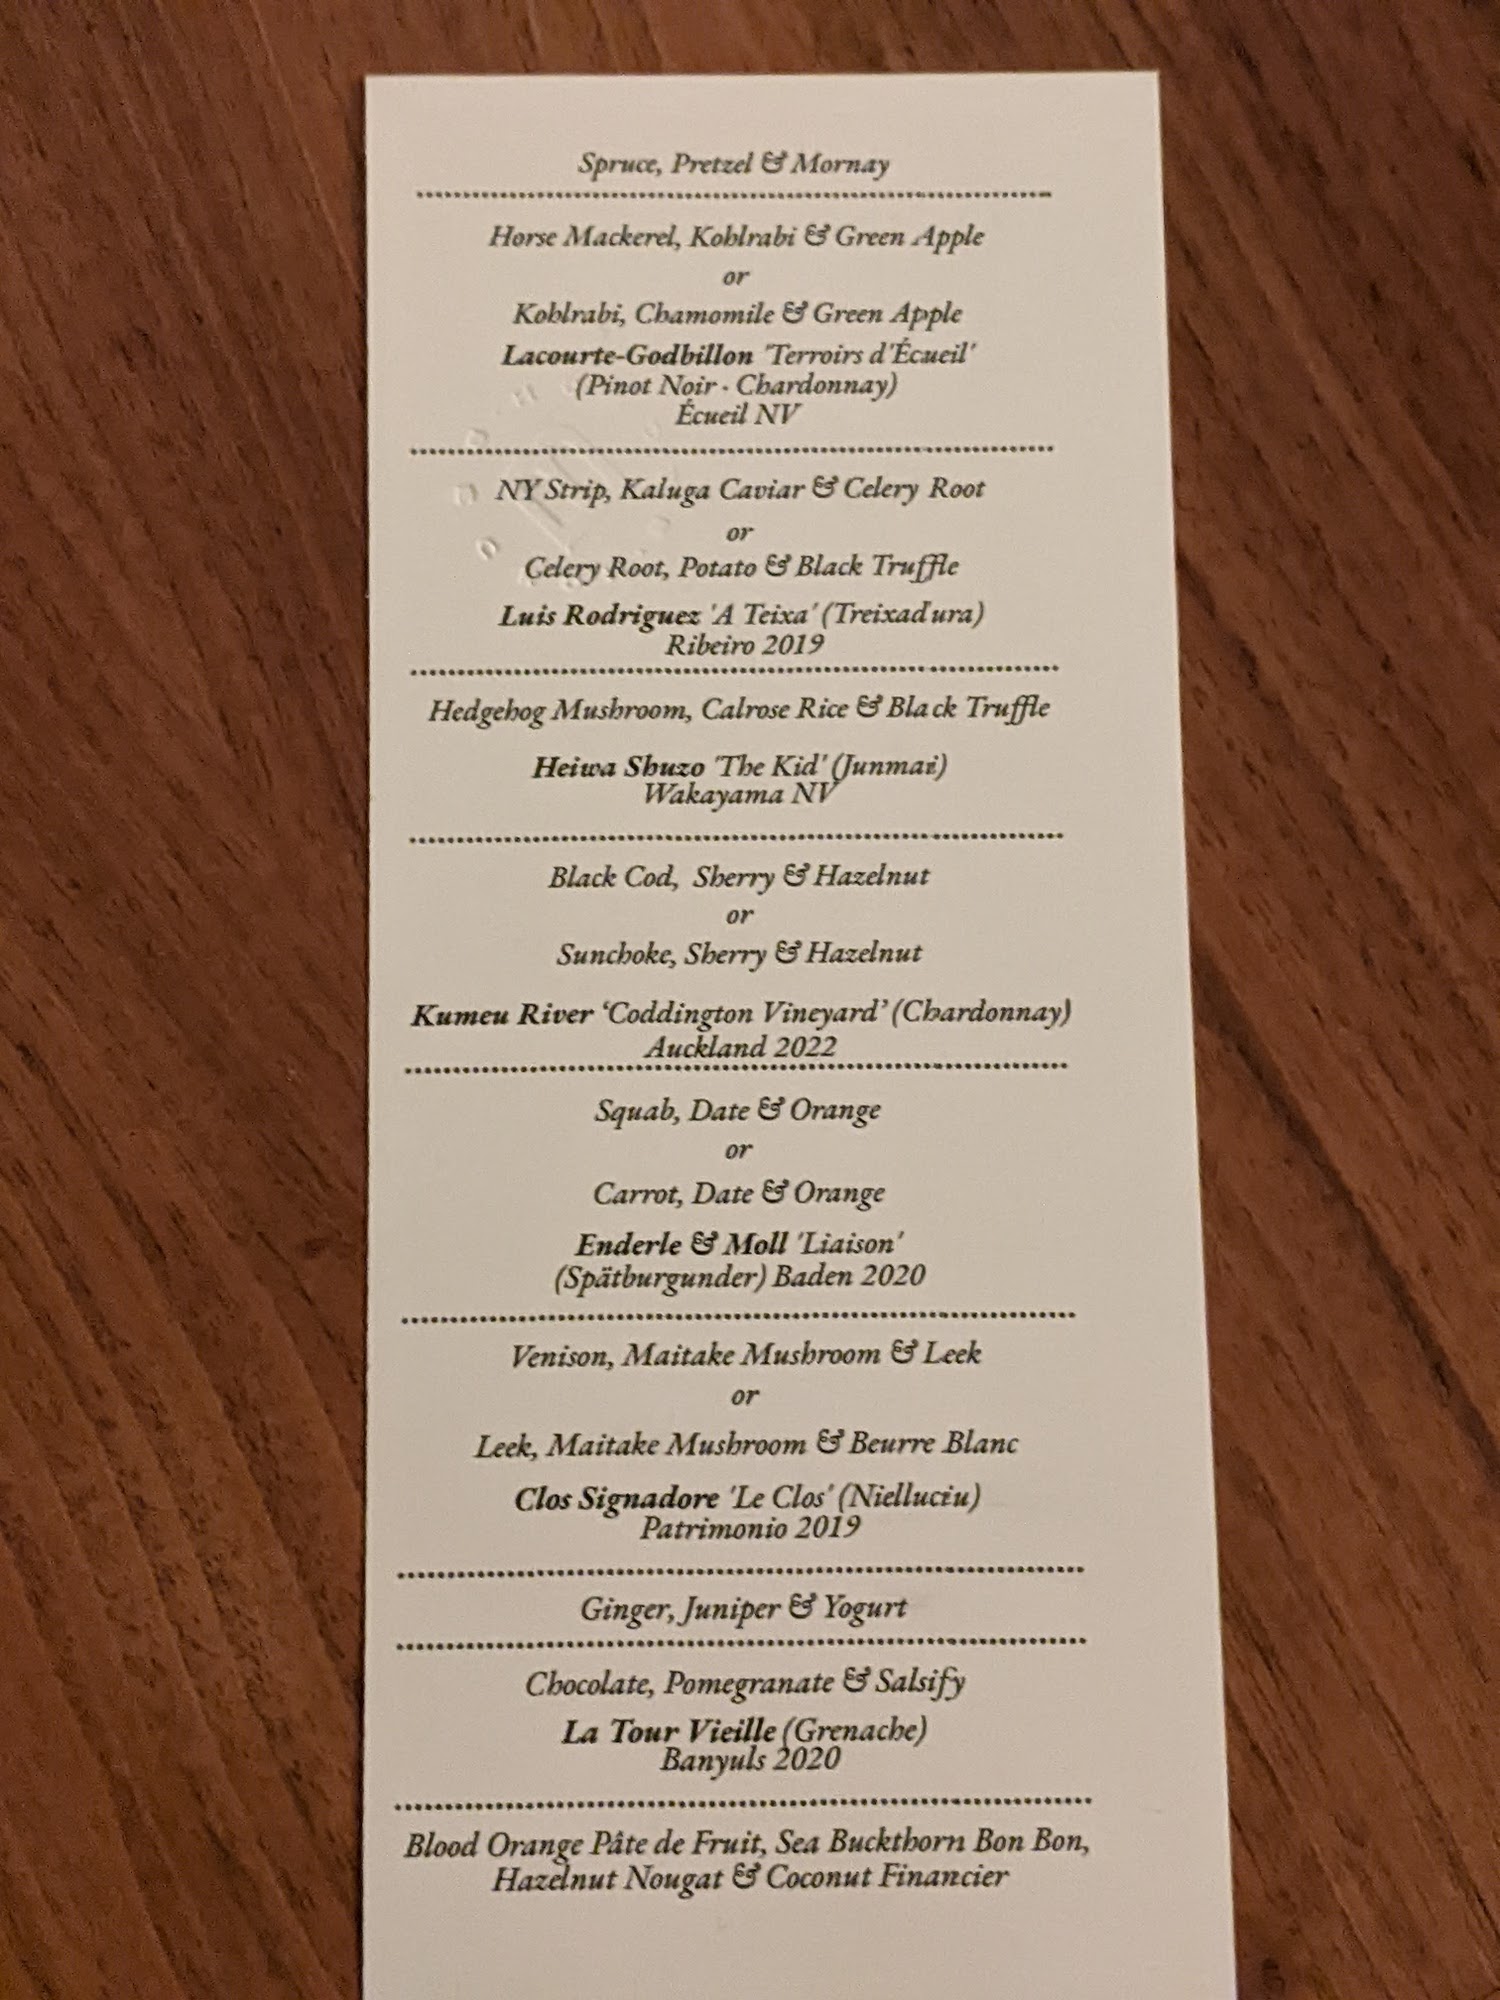 Spruce, Pretzel & Mornay
Horse Mackerel, Kohlrabi & Green Apple
or
Kohlrabi, Chamomile & Green Apple
Lacourte-Godbillon 'Terroirs d'Écueil'
(Pinot Noir - Chardonnay)
Écueil NV
NY Strip, Kaluga Caviar & Celery Root
or
Celery Root, Potato & Black Truffle
Luis Rodriguez 'A Teixa' (Treixadura)
Ribeiro 2019
Hedgehog Mushroom, Calrose Rice & Black Truffle
Heiwa Shuzo 'The Kid' (Junmai)
Wakayama NV
Black Cod, Sherry & Hazelnut
or
Sunchoke, Sherry & Hazelnut
Kumeu River ‘Coddington Vineyard’ (Chardonnay)
Auckland 2022
Squab, Date & Orange
or
Carrot, Date & Orange
Enderle & Moll 'Liaison'
(Spätburgunder) Baden 2020
Venison, Maitake Mushroom & Leek
or
Leek, Maitake Mushroom & Beurre Blanc
Clos Signadore 'Le Clos' (Nielluciu)
Patrimonio 2019
Ginger, Juniper & Yogurt
Chocolate, Pomegranate & Salsify
La Tour Vieille (Grenache)
Banyuls 2020
Blood Orange Pâte de Fruit, Sea Buckthorn Bon Bon,
Hazelnut Nougat & Coconut Financier